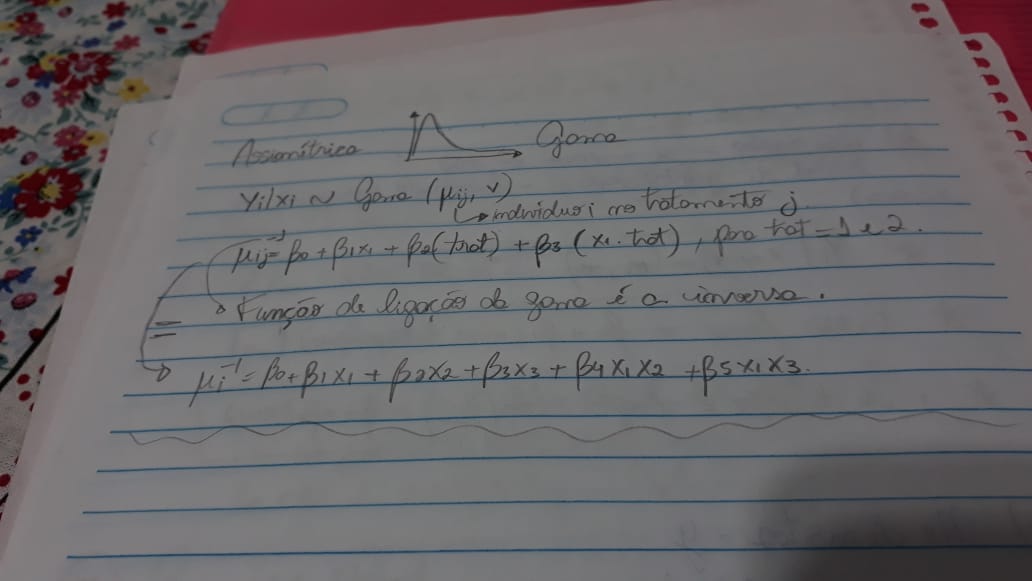 Assimétrica Gama
Yi/xi ~ Gama (μij, ν)
↳ indivíduo i no tratamento j
μij⁻¹ = β0 + β1x1 + β2(trat) + β3 (x1.trat), para trat = 1 e 2.
↳ Função de ligação da gama é a inversa.
μi⁻¹ = β0 + β1x1 + β2x2 + β3x3 + β4x1x2 + β5x1x3.